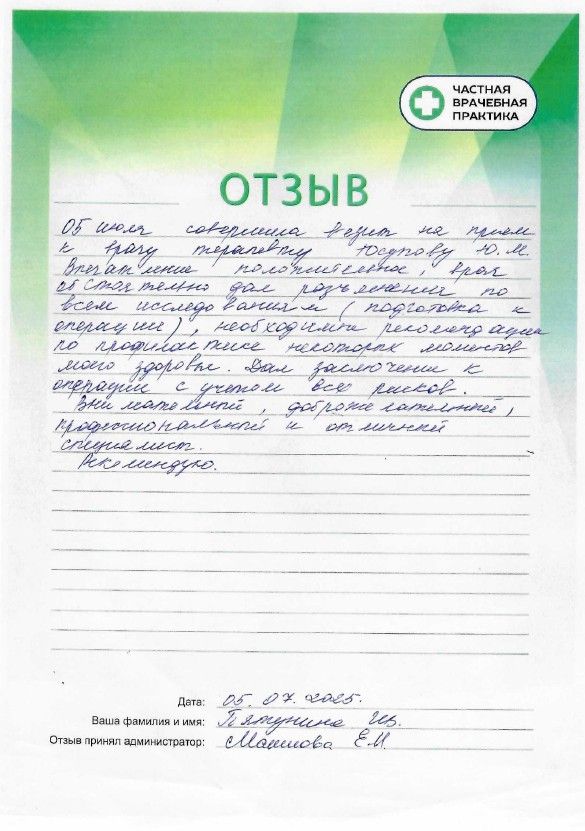 ЧАСТНАЯ
ВРАЧЕБНАЯ
ПРАКТИКА
ОТЗЫВ
05 июля совершила визит на прием
к врачу терапевту Юсупову Ю.М.
Впечатление положительное, врач
обстоятельно дал разъяснения по
всем исследованиям (подготовка к
операции), необходимые рекомендации
по профилактике некоторых моментов
моего здоровья. Дал заключение к
операции с учетом все рисков.
Внимательный, доброжелательный,
профессиональный и отличный
специалист.
Рекомендую.
Дата: 05.07.2025.
Ваша фамилия и имя:
Отзыв принял администратор: Е.М.